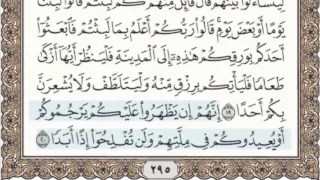 لِيَتَسَآءَلُوا۟ بَيْنَهُمْ قَالَ قَآئِلٌ مِّنْهُمْ كَمْ لَبِثْتُمْ قَالُوا۟ لَبِثْنَا
يَوْمًا أَوْ بَعْضَ يَوْمٍۚ قَالُوا۟ رَبُّكُمْ أَعْلَمُ بِمَا لَبِثْتُمْ فَٱبْعَثُوٓا۟
أَحَدَكُم بِوَرِقِكُمْ هَٰذِهِۦٓ إِلَى ٱلْمَدِينَةِ فَلْيَنظُرْ أَيُّهَآ أَزْكَىٰ
طَعَامًا فَلْيَأْتِكُم بِرِزْقٍ مِّنْهُ وَلْيَتَلَطَّفْ وَلَا يُشْعِرَنَّ
بِكُمْ أَحَدًا ١٩ إِنَّهُمْ إِن يَظْهَرُوا۟ عَلَيْكُمْ يَرْجُمُوكُمْ
أَوْ يُعِيدُوكُمْ فِى مِلَّتِهِمْ وَلَن تُفْلِحُوٓا۟ إِذًا أَبَدًا ٢٠
٢٩٥